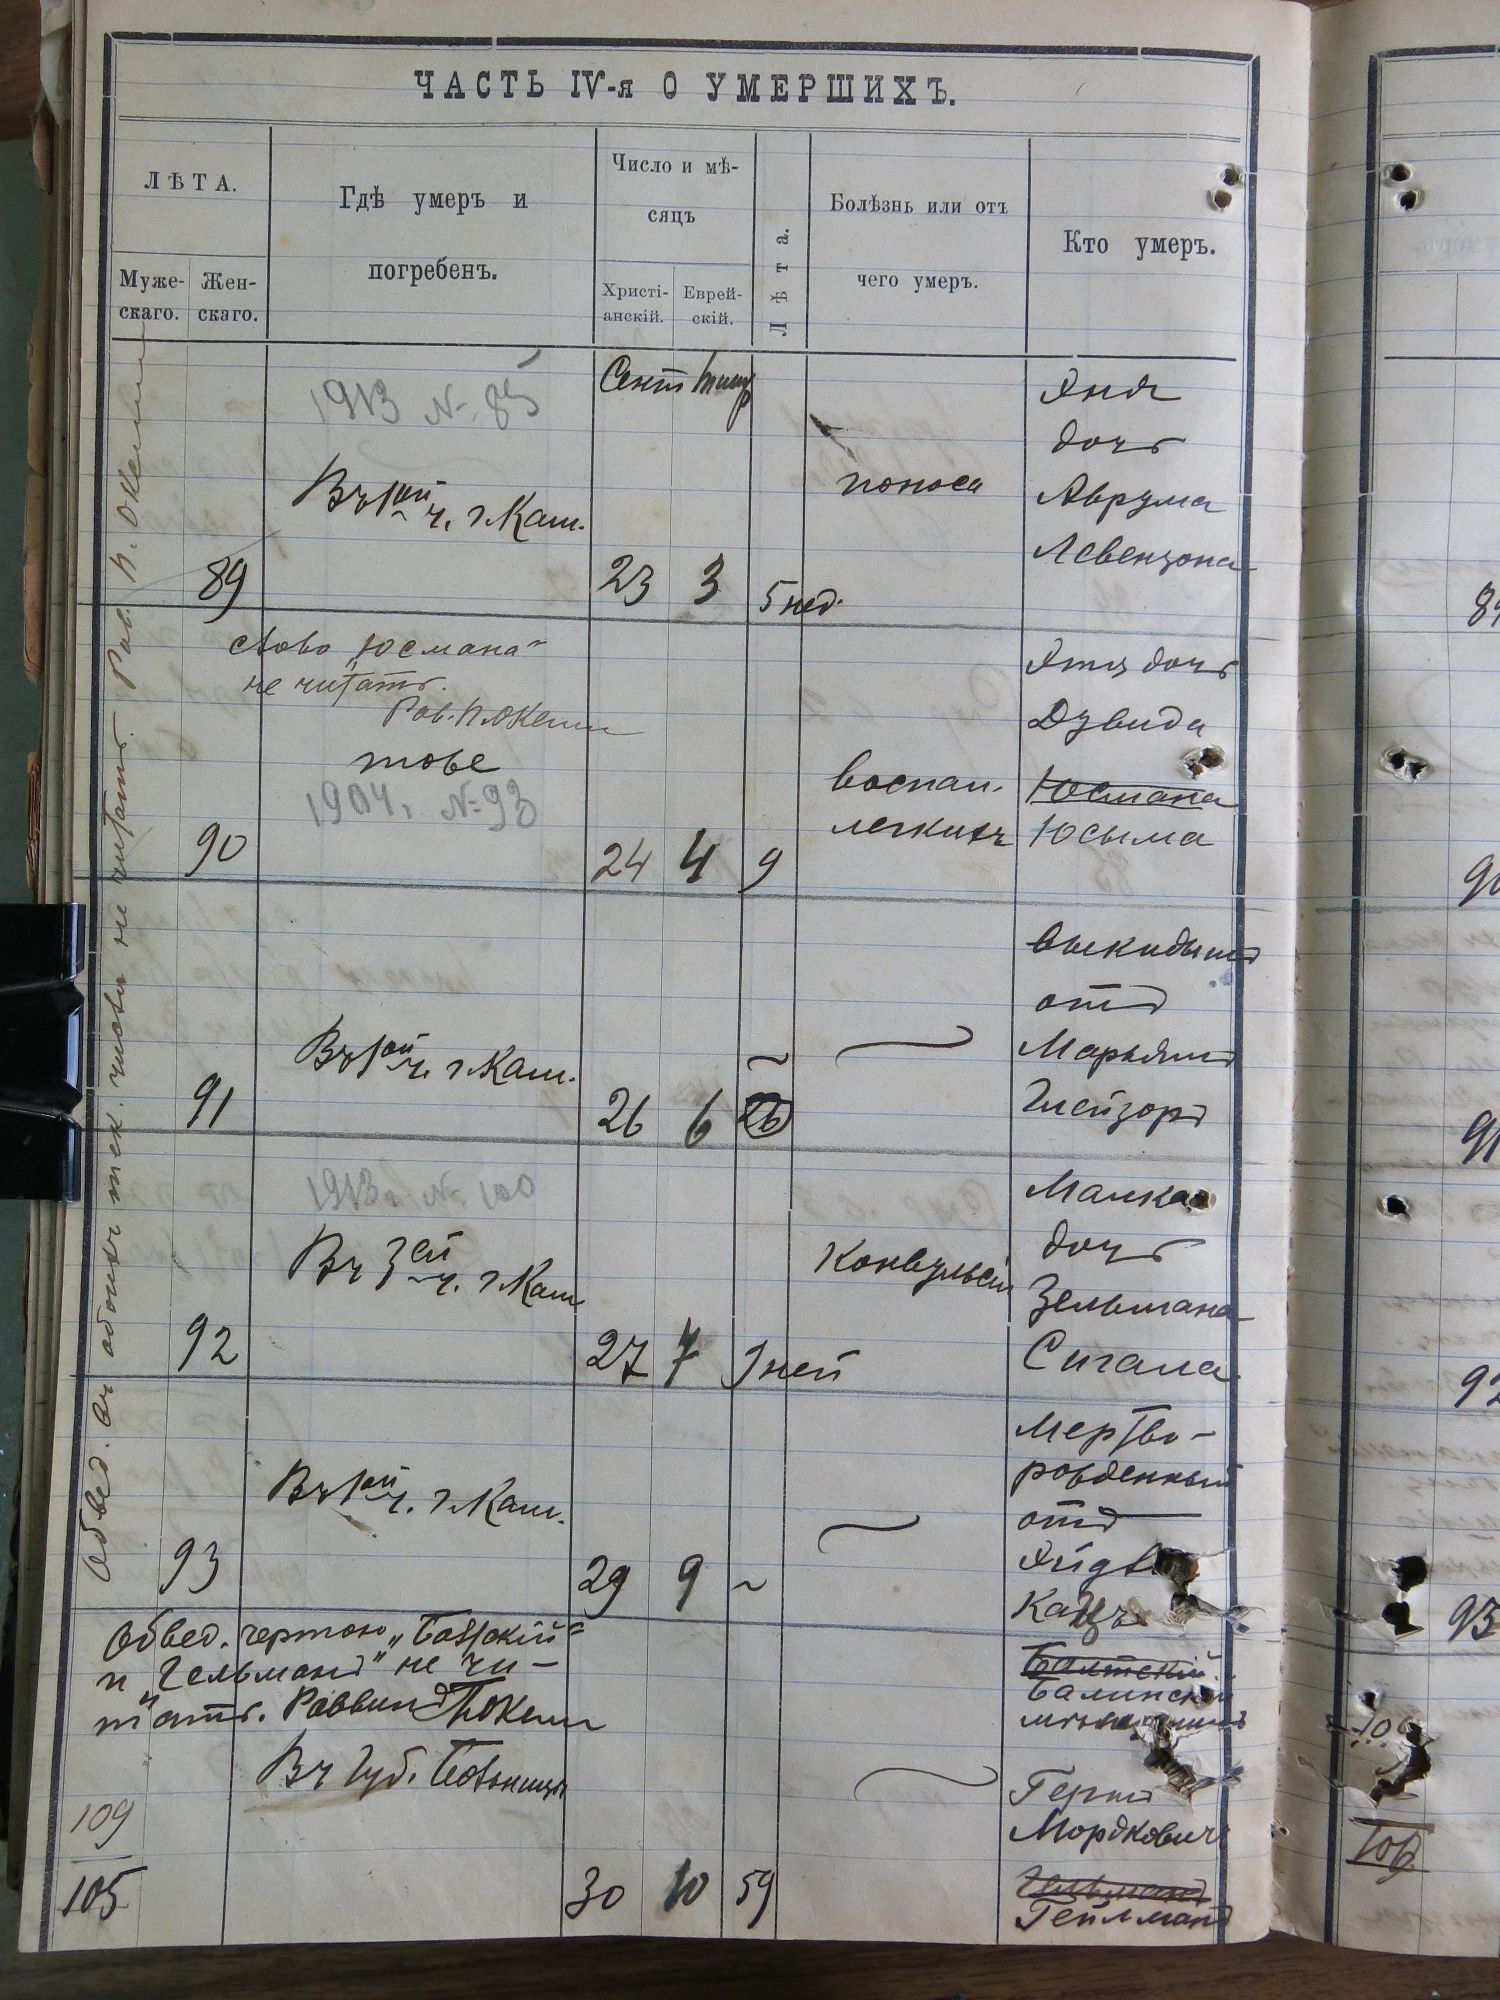 ЧАСТЬ IV-я О УМЕРШИХЪ.
ЛѢТА.
Муже-
скаго.
Жен-
скаго.
Гдѣ умеръ и
погребенъ.
Число и мѣ-
сяцъ
Христі-
анскій.
Еврей-
скій.
Лѣта.
Болѣзнь или отъ
чего умеръ.
Кто умеръ.
Сент
1913 № 85
Въ 1ой ч. г. Каш.
89
23
3
5 нед.
поноса
Хня
дочь
Аврума
Левензона
слово „Юсмана“
не читать.
Рав.
тове
1904, № 93
90
24
4
9
воспал.
легкихъ
дочь
Дувида
Юсмана
Юсыма
Въ 1ой ч. г. Каш.
91
26
6
~
26
выкидышъ
отъ
Марьямъ
Глейзоръ
1913 № 100
Въ 3ей ч. г. Каш
92
27
7
дней
Конвульсіи
Малка
дочь
Зельмана
Сигала
Въ 1ой ч. г. Каш.
93
29
9
~
Мертво-
рожденный
отъ
Кацъ
Обвед. чертою „Балтскій“
и „Гельманъ“ не чи-
тать. Раввинъ
Въ Губ. Больницѣ
109
105
30
10
59
Балтскій
Балинскій
мѣщанинъ
Герш
Мордковичъ
Гельманъ
Гейлманъ
Обвед. въ обоихъ тек. числа не читать. Рав.
90
91
92
93
106